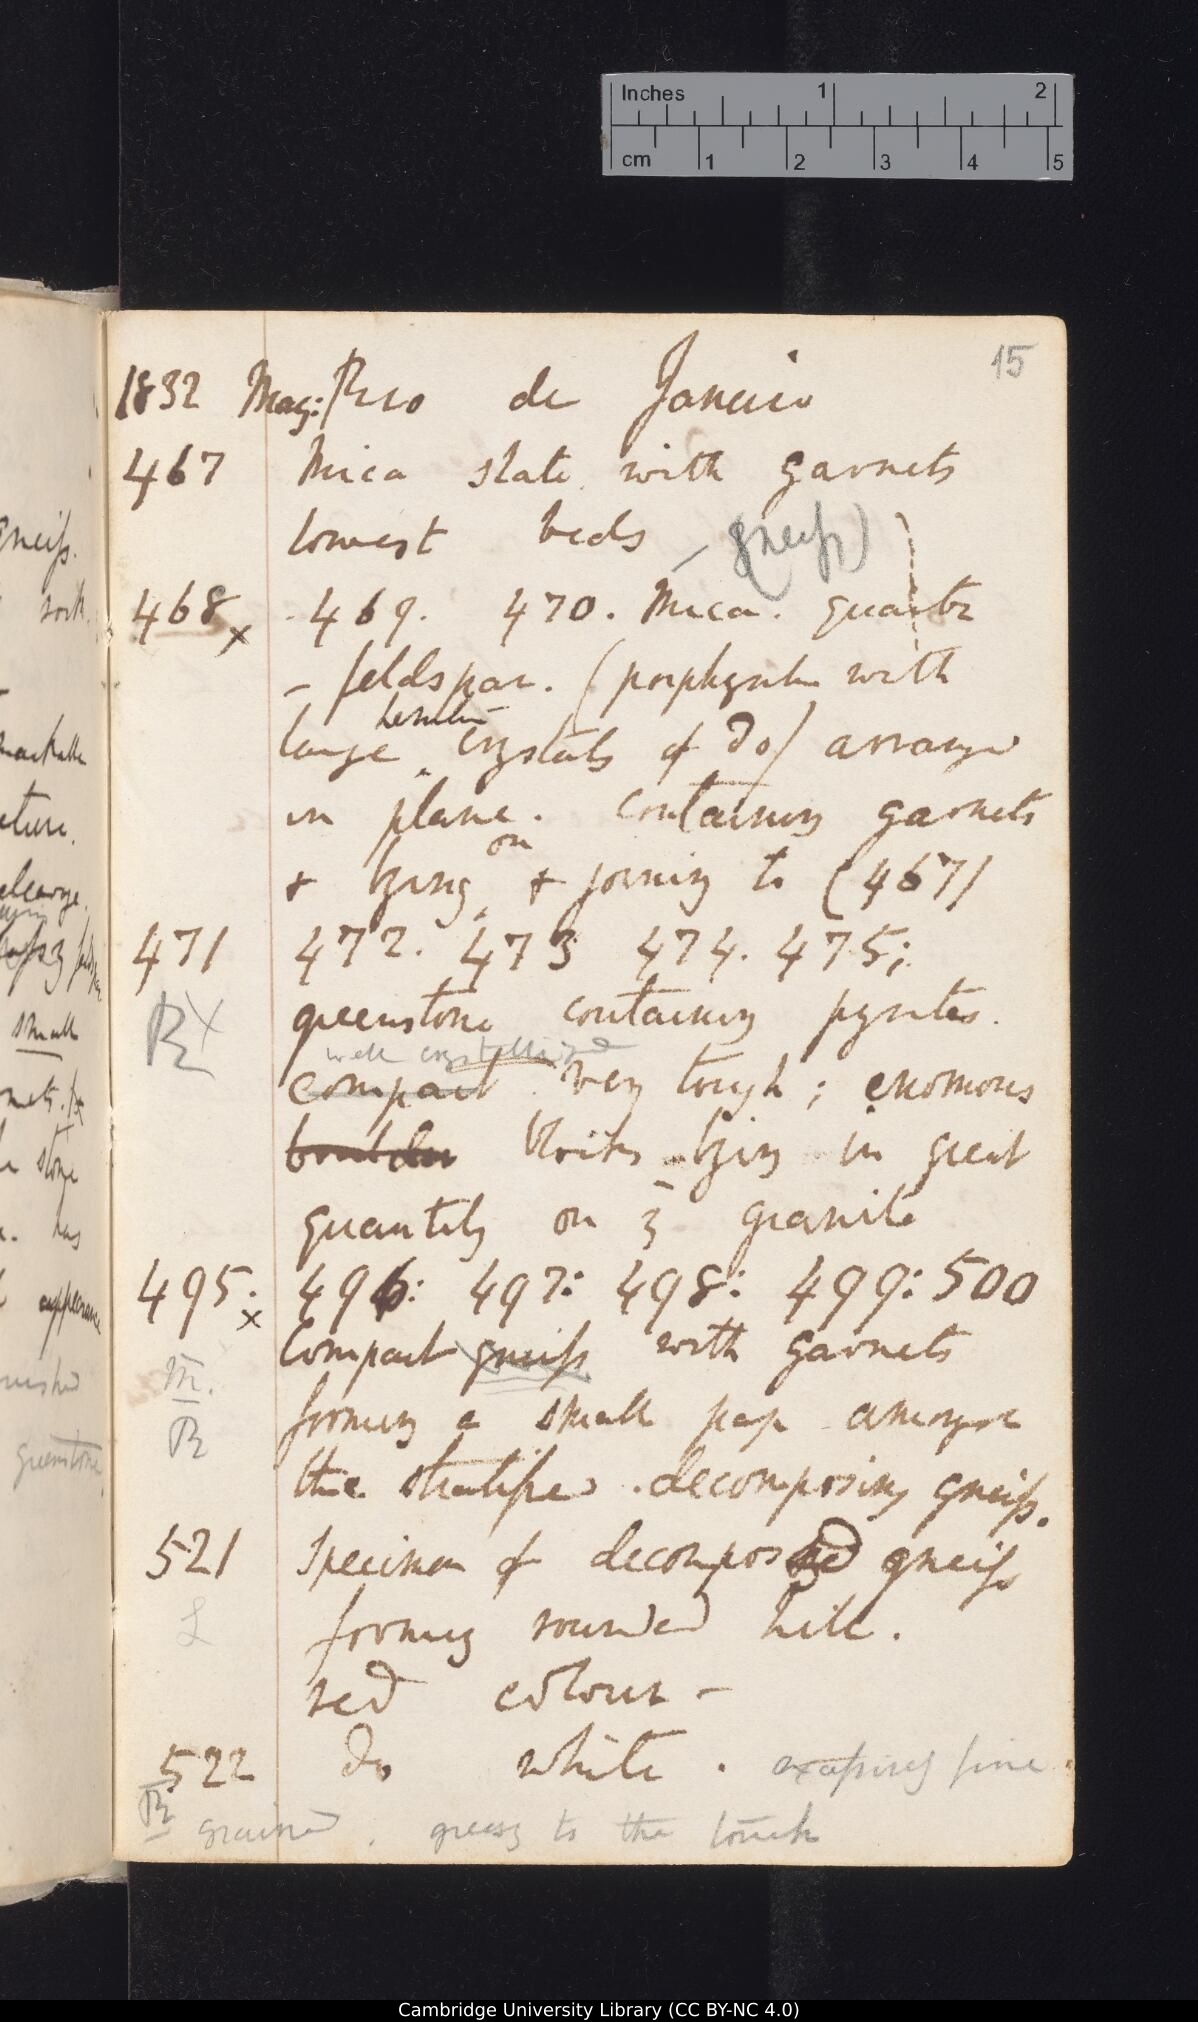 Inches 1 2
cm 1 2 3 4 5
15
1832 May: Rio de Janeiro
467 Mica slate with garnets
lowest beds – gneiss)
468 x 469. 470. Mica. quartz
– feldspar. (porphyritic with
large hemitr crystals of Do) arranged
in plane. containing garnets
& lying on & joining to (467)
471 472. 473 474. 475;
R x greenstone containing pyrites.
well crystallized
compact very tough; enormous
boulder blocks lying in great
quantity on ye granite
495. x 496: 497: 498: 499: 500
Compact gneiss with garnets
m.
R forming a small pap amongst
the stratified decomposing gneiss.
521 Specimen of decomposed gneiss
L forming rounded hill.
red colour –
522 Do white. exceſsively fine
R grained, greasy to the touch
gneiſs.
small
stone
has
appearance
greenstone
Cambridge University Library (CC BY-NC 4.0)